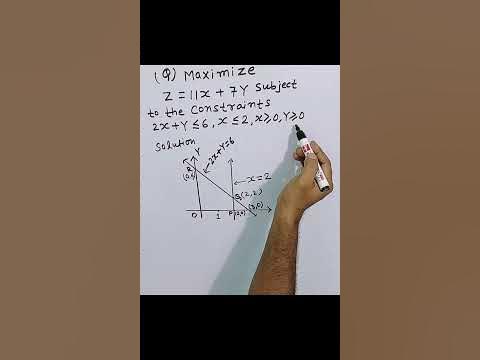 (Q) Maximize
Z = 11x + 7Y Subject
to the Constraints
2x+Y ≤ 6, x ≤ 2, x ≥ 0, Y ≥ 0
Solution
Y
2x+Y=6
R
x = 2
Q(2,2)
(3,0)
O
1
P